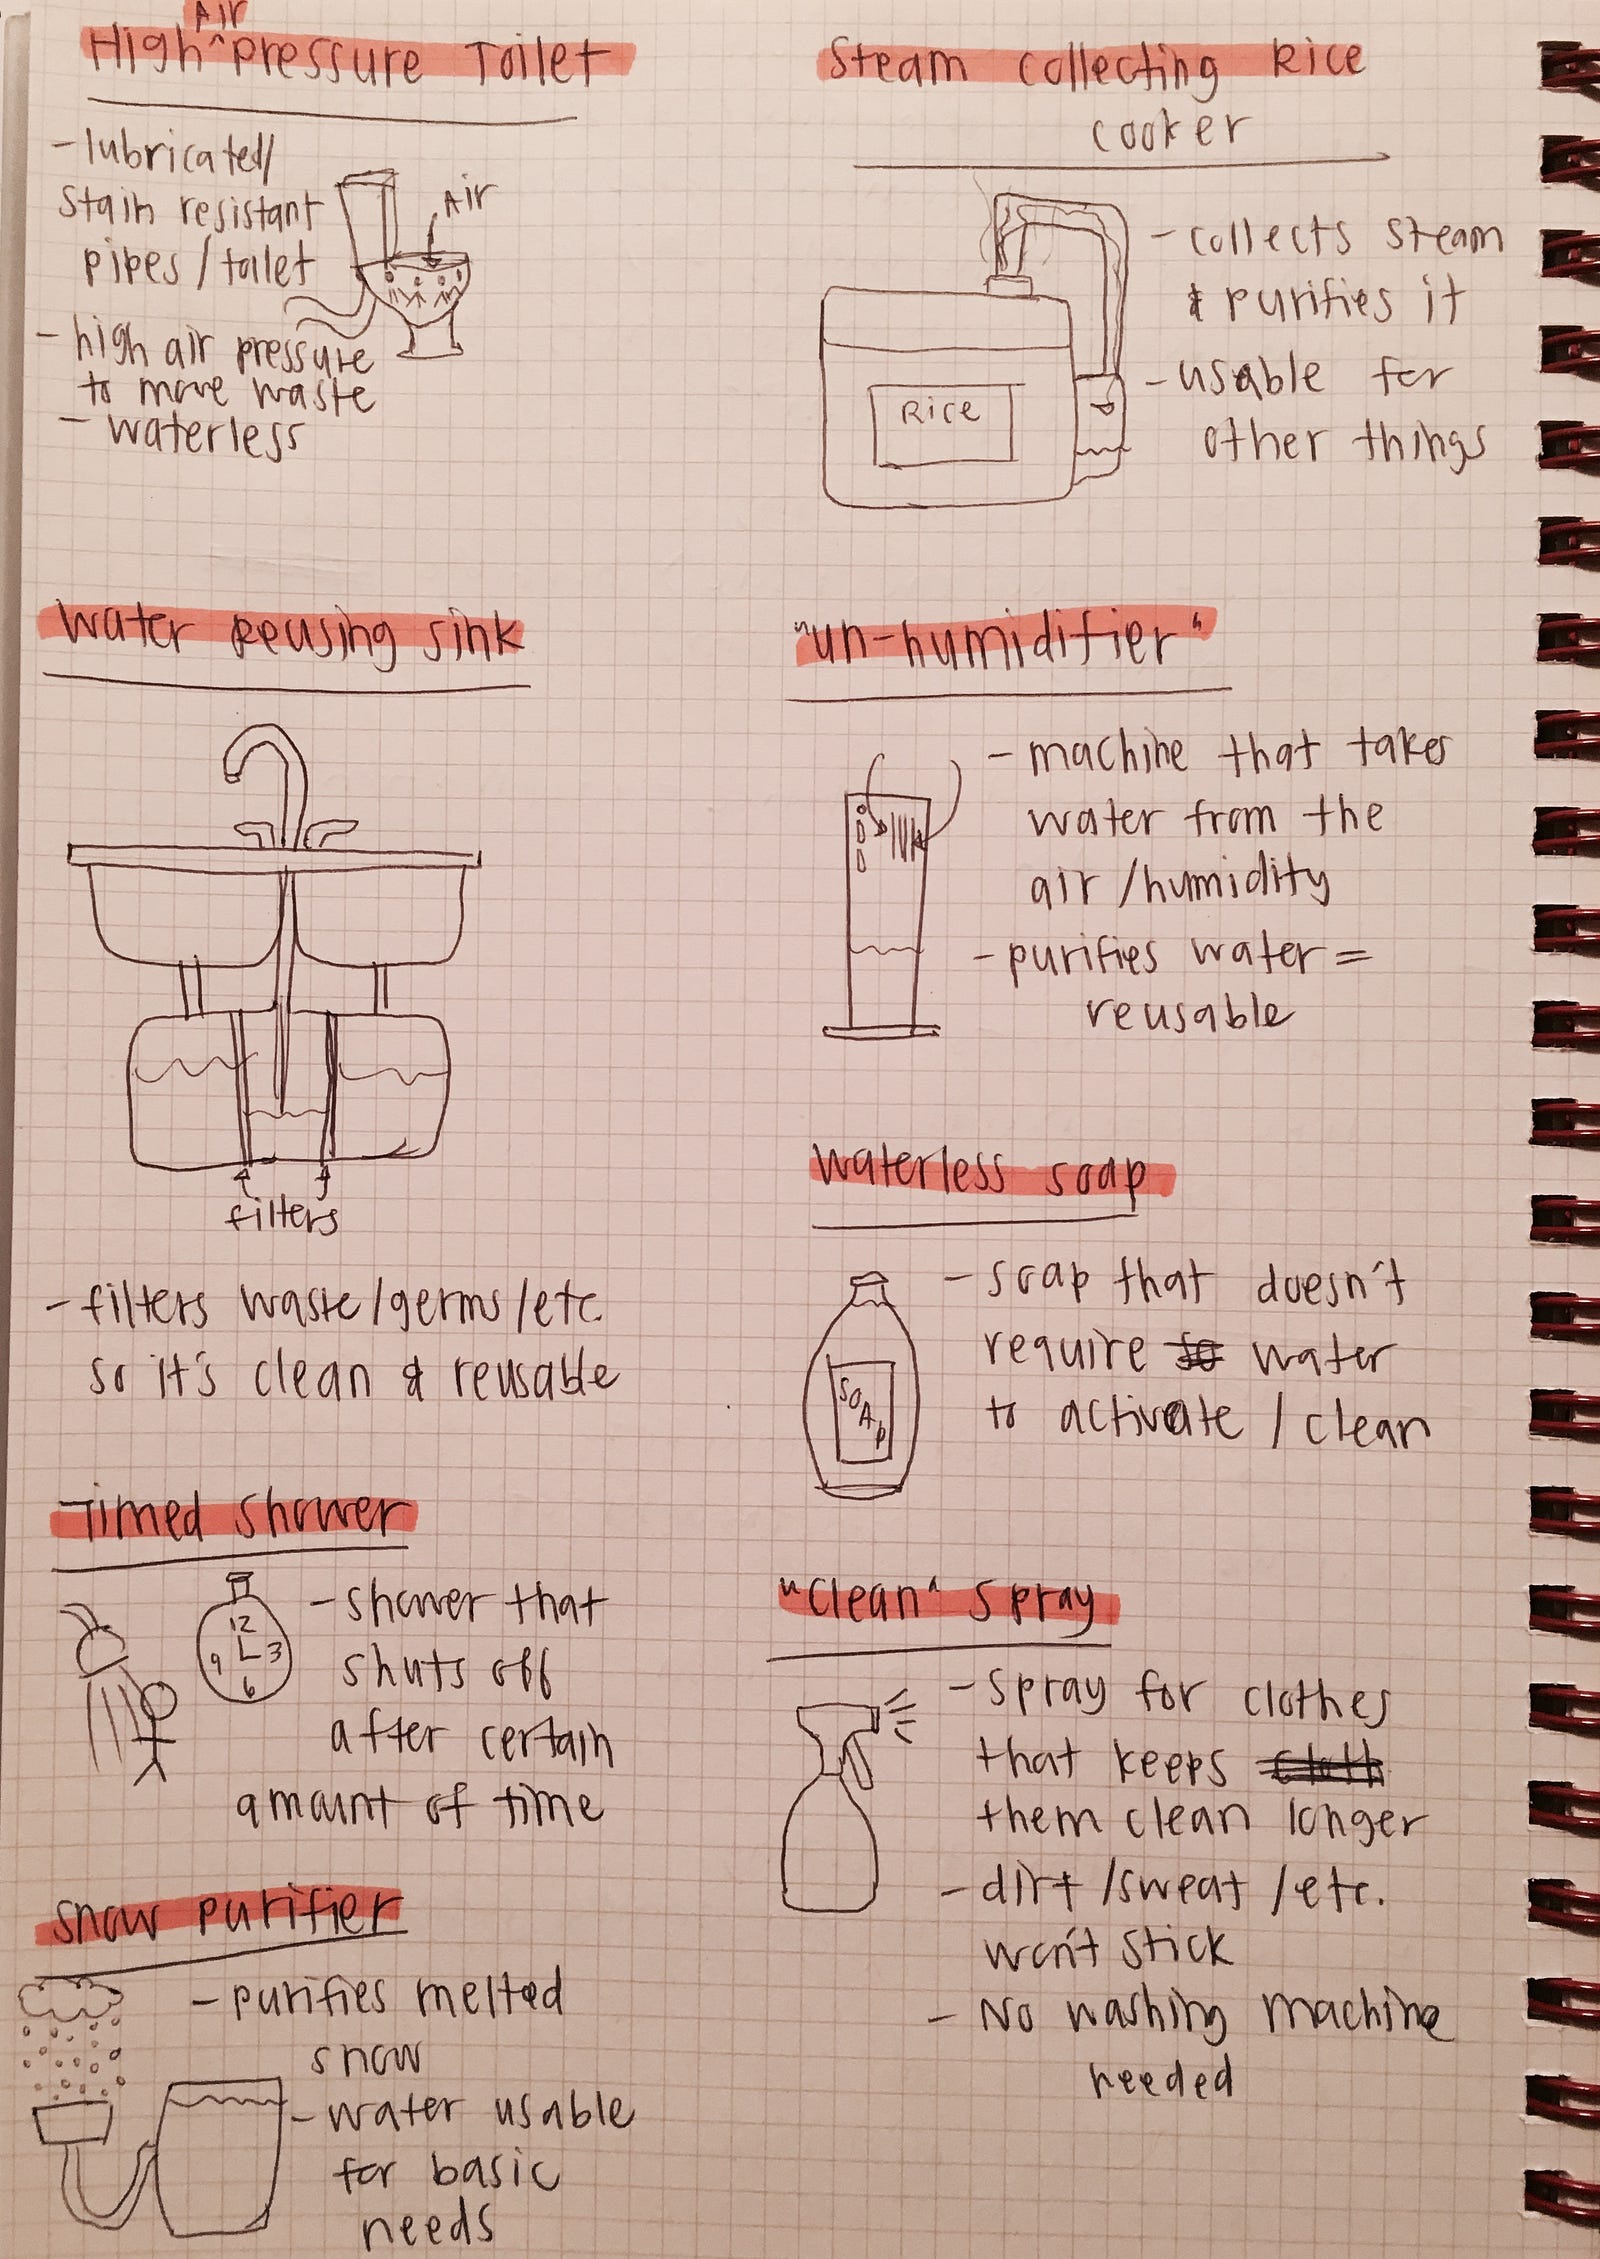 High ^Air Pressure Toilet
- lubricated/
stain resistant
pipes / toilet
Air
- high air pressure
to move waste
- waterless
Steam collecting Rice
cooker
- collects steam
& purifies it
- usable for
other things
Rice
Water Reusing Sink
filters
- filters waste/germs/etc.
so it's clean & reusable
"un-humidifier"
- machine that takes
water from the
air /humidity
- purifies water =
reusable
Waterless soap
- soap that doesn't
require to water
to activate / clean
SOAP
Timed Shower
12
9 3
6
- shower that
shuts off
after certain
amount of time
"Clean" Spray
- spray for clothes
that keeps cloth
them clean longer
- dirt /sweat /etc.
won't stick
- No washing machine
needed
Snow purifier
- purifies melted
snow
- water usable
for basic
needs